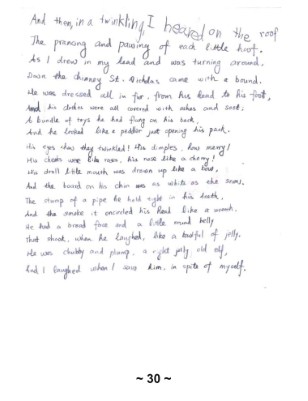 And then, in a twinkling, I heard on the roof
The prancing and pawing of each little hoof.
As I drew in my head and was turning around.
Down the chimney St. Nicholas came with a bound.
He was dressed all in fur, from his head to his foot,
And his clothes were all covered with ashes and soot.
A bundle of toys he had flung on his back,
And he looked like a pedlar just opening his pack.
His eyes how they twinkled! His dimples, how merry!
His cheeks were like roses, his nose like a cherry!
His droll little mouth was drawn up like a bow,
And the beard on his chin was as white as the snow,
The stump of a pipe he held tight in his teeth,
And the smoke it encircled his head like a wreath.
He had a broad face and a little round belly
That shook, when he laughed, like a bowlful of jelly.
He was chubby and plump, a right jolly old elf,
And I laughed when I saw him, in spite of myself.
~ 30 ~